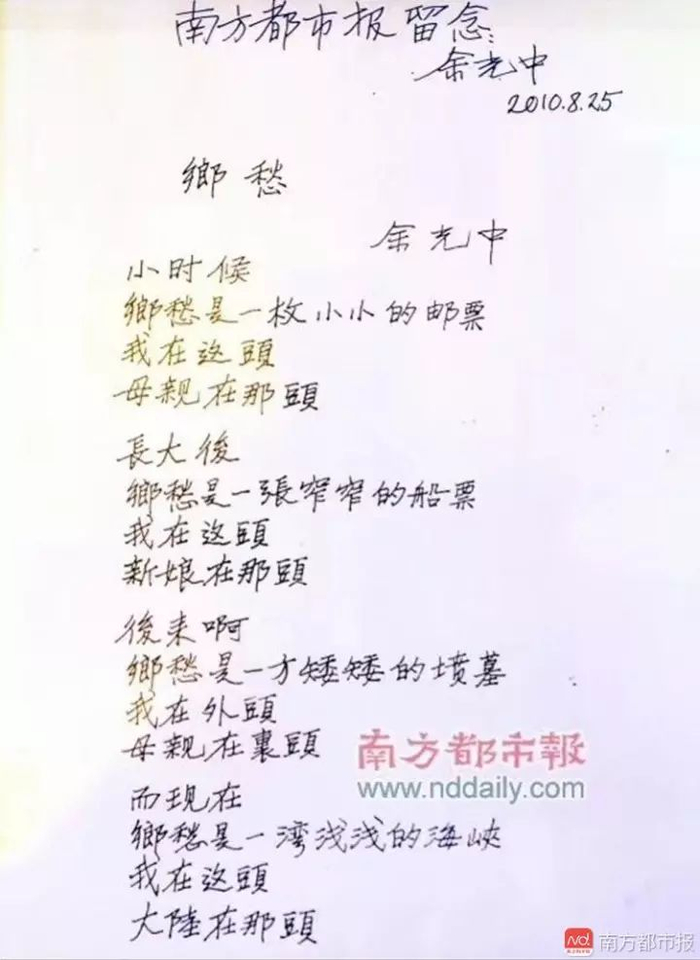 南方都市报留念:
余光中
2010.8.25
鄉愁
余光中
小时候
鄉愁是一枚小小的邮票
我在这頭
母親在那頭
長大後
鄉愁是一張窄窄的船票
我在这頭
新娘在那頭
後来啊
鄉愁是一方矮矮的坟墓
我在外頭
母親在裏頭
南方都市報
www.nddaily.com
而现在
鄉愁是一湾浅浅的海峽
我在这頭
大陸在那頭
南方都市报